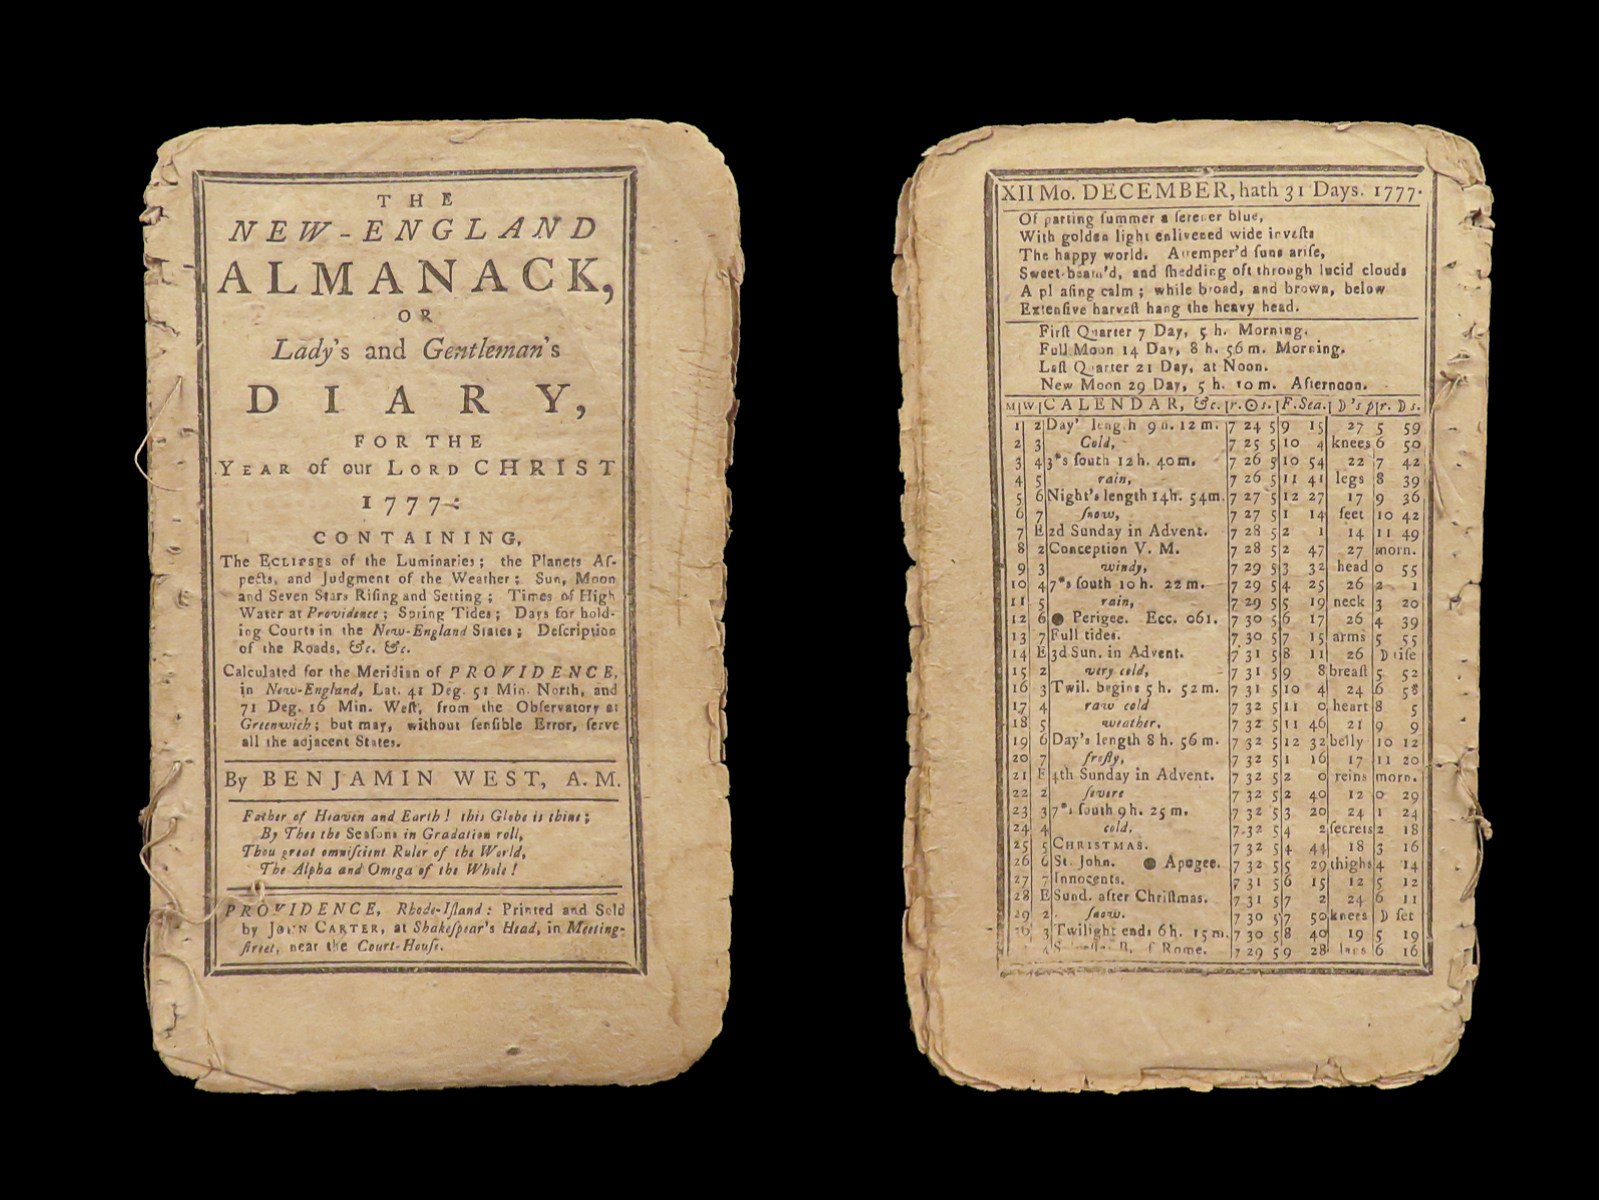 THE
NEW-ENGLAND
ALMANACK,
OR
Lady's and Gentleman's
DIARY,
FOR THE
YEAR of our LORD CHRIST
1777:
CONTAINING,
The ECLIPSES of the Luminaries; the Planets Aſ-
pects, and Judgment of the Weather; Sun, Moon
and Seven Stars Riſing and Setting; Times of High
Water at Providence; Spring Tides; Days for hold-
ing Courts in the New-England States; Deſcription
of the Roads, &c. &c.
Calculated for the Meridian of PROVIDENCE,
in New-England, Lat. 41 Deg. 51 Min. North, and
71 Deg. 16 Min. Weſt, from the Obſervatory at
Greenwich; but may, without ſenſible Error, ſerve
all the adjacent States.
By BENJAMIN WEST, A.M.
Father of Heaven and Earth! this Globe is thine;
By Thee the Seaſons in Gradation roll,
Thou great omniſcient Ruler of the World,
The Alpha and Omega of the Whole!
PROVIDENCE, Rhode-Iſland: Printed and Sold
by JOHN CARTER, at Shakeſpear's Head, in Meeting-
ſtreet, near the Court-Houſe.
XII Mo. DECEMBER, hath 31 Days. 1777.
Of parting ſummer a ſerener blue,
With golden light enlivened wide inveſts
The happy world. Attemper'd ſuns ariſe,
Sweet-beam'd, and ſhedding oft through lucid clouds
A pleaſing calm; while broad, and brown, below
Extenſive harveſt hang the heavy head.
Firſt Quarter 7 Day, 5 h. Morning.
Full Moon 14 Day, 8 h. 56 m. Morning.
Laſt Quarter 21 Day, at Noon.
New Moon 29 Day, 5 h. 10 m. Afternoon.
M|W|CALENDAR, &c.|r.☉s.|F.Sea.|☽'s p|r. ☽ s.
1 2 Day' length 9 h. 12 m. 7 24 5 9 15 27 5 59
2 3 Cold, 7 25 5 10 4 knees 6 50
3 4 7*s ſouth 12 h. 40 m. 7 26 5 10 54 22 7 42
4 5 rain, 7 26 5 11 41 legs 8 39
5 6 Night's length 14h. 54m. 7 27 5 12 27 17 9 36
6 7 ſnow, 7 27 5 1 14 feet 10 42
7 E 2d Sunday in Advent. 7 28 5 2 1 14 11 49
8 2 Conception V. M. 7 28 5 2 47 27 morn.
9 3 windy, 7 29 5 3 32 head 0 55
10 4 7*s ſouth 10 h. 22 m. 7 29 5 4 25 26 2 1
11 5 rain, 7 29 5 5 19 neck 3 20
12 6 ● Perigee. Ecc. 061. 7 30 5 6 17 26 4 39
13 7 Full tides. 7 30 5 7 15 arms 5 55
14 E 3d Sun. in Advent. 7 31 5 8 11 26 ☽ riſe
15 2 very cold, 7 31 5 9 8 breaſt 5 52
16 3 Twil. begins 5 h. 52 m. 7 31 5 10 4 24 6 58
17 4 raw cold 7 32 5 11 0 heart 8 5
18 5 weather. 7 32 5 11 46 21 9 9
19 6 Day's length 8 h. 56 m. 7 32 5 12 32 belly 10 12
20 7 froſty, 7 32 5 1 16 17 11 20
21 E 4th Sunday in Advent. 7 32 5 2 0 reins morn.
22 2 ſevere 7 32 5 2 40 12 0 29
23 3 7*s ſouth 9 h. 25 m. 7 32 5 3 20 24 1 24
24 4 cold. 7 32 5 4 2 ſecrets 2 18
25 5 CHRISTMAS. 7 32 5 4 44 18 3 16
26 6 St. John. ● Apogee. 7 32 5 5 29 thighs 4 14
27 7 Innocents. 7 31 5 6 15 12 5 12
28 E Sund. after Chriſtmas. 7 31 5 7 2 24 6 11
29 2 ſnow. 7 30 5 7 50 knees ☽ ſet
3 Twilight ends 6 h. 15 m. 7 30 5 8 40 19 5 19
4 Rome. 7 29 5 9 28 6 16